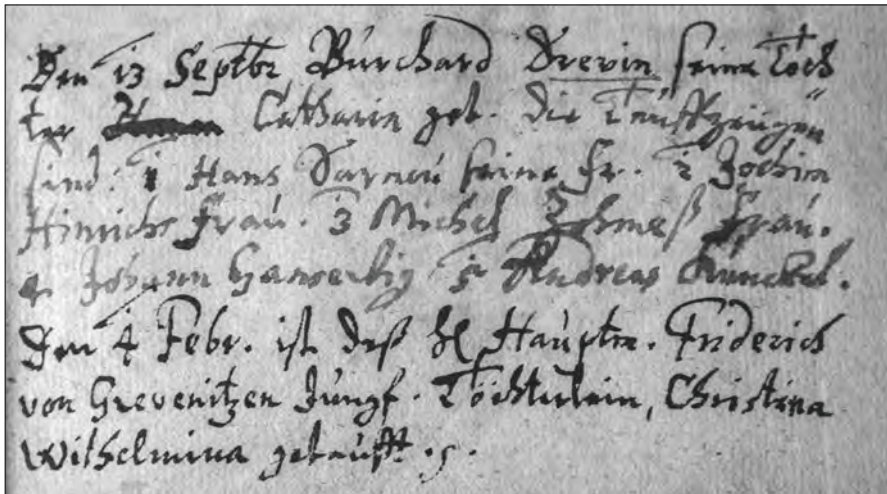 Den 13 Septbr, Burchard Drevin seine Töch
ter Catharin get. die Tauffzeugen
sind: 1 Hans Darnau seine Fr. 2 Jochim
Hinrichs Frau. 3 Michel Frau.
4 Johann 5 Andreas Kunckel.
Den 4 Febr. ist deß H Hauptm. Friderich
von Grevenitzen Jungf. Töchterlein, Christina
Wilhelmina getaufft.